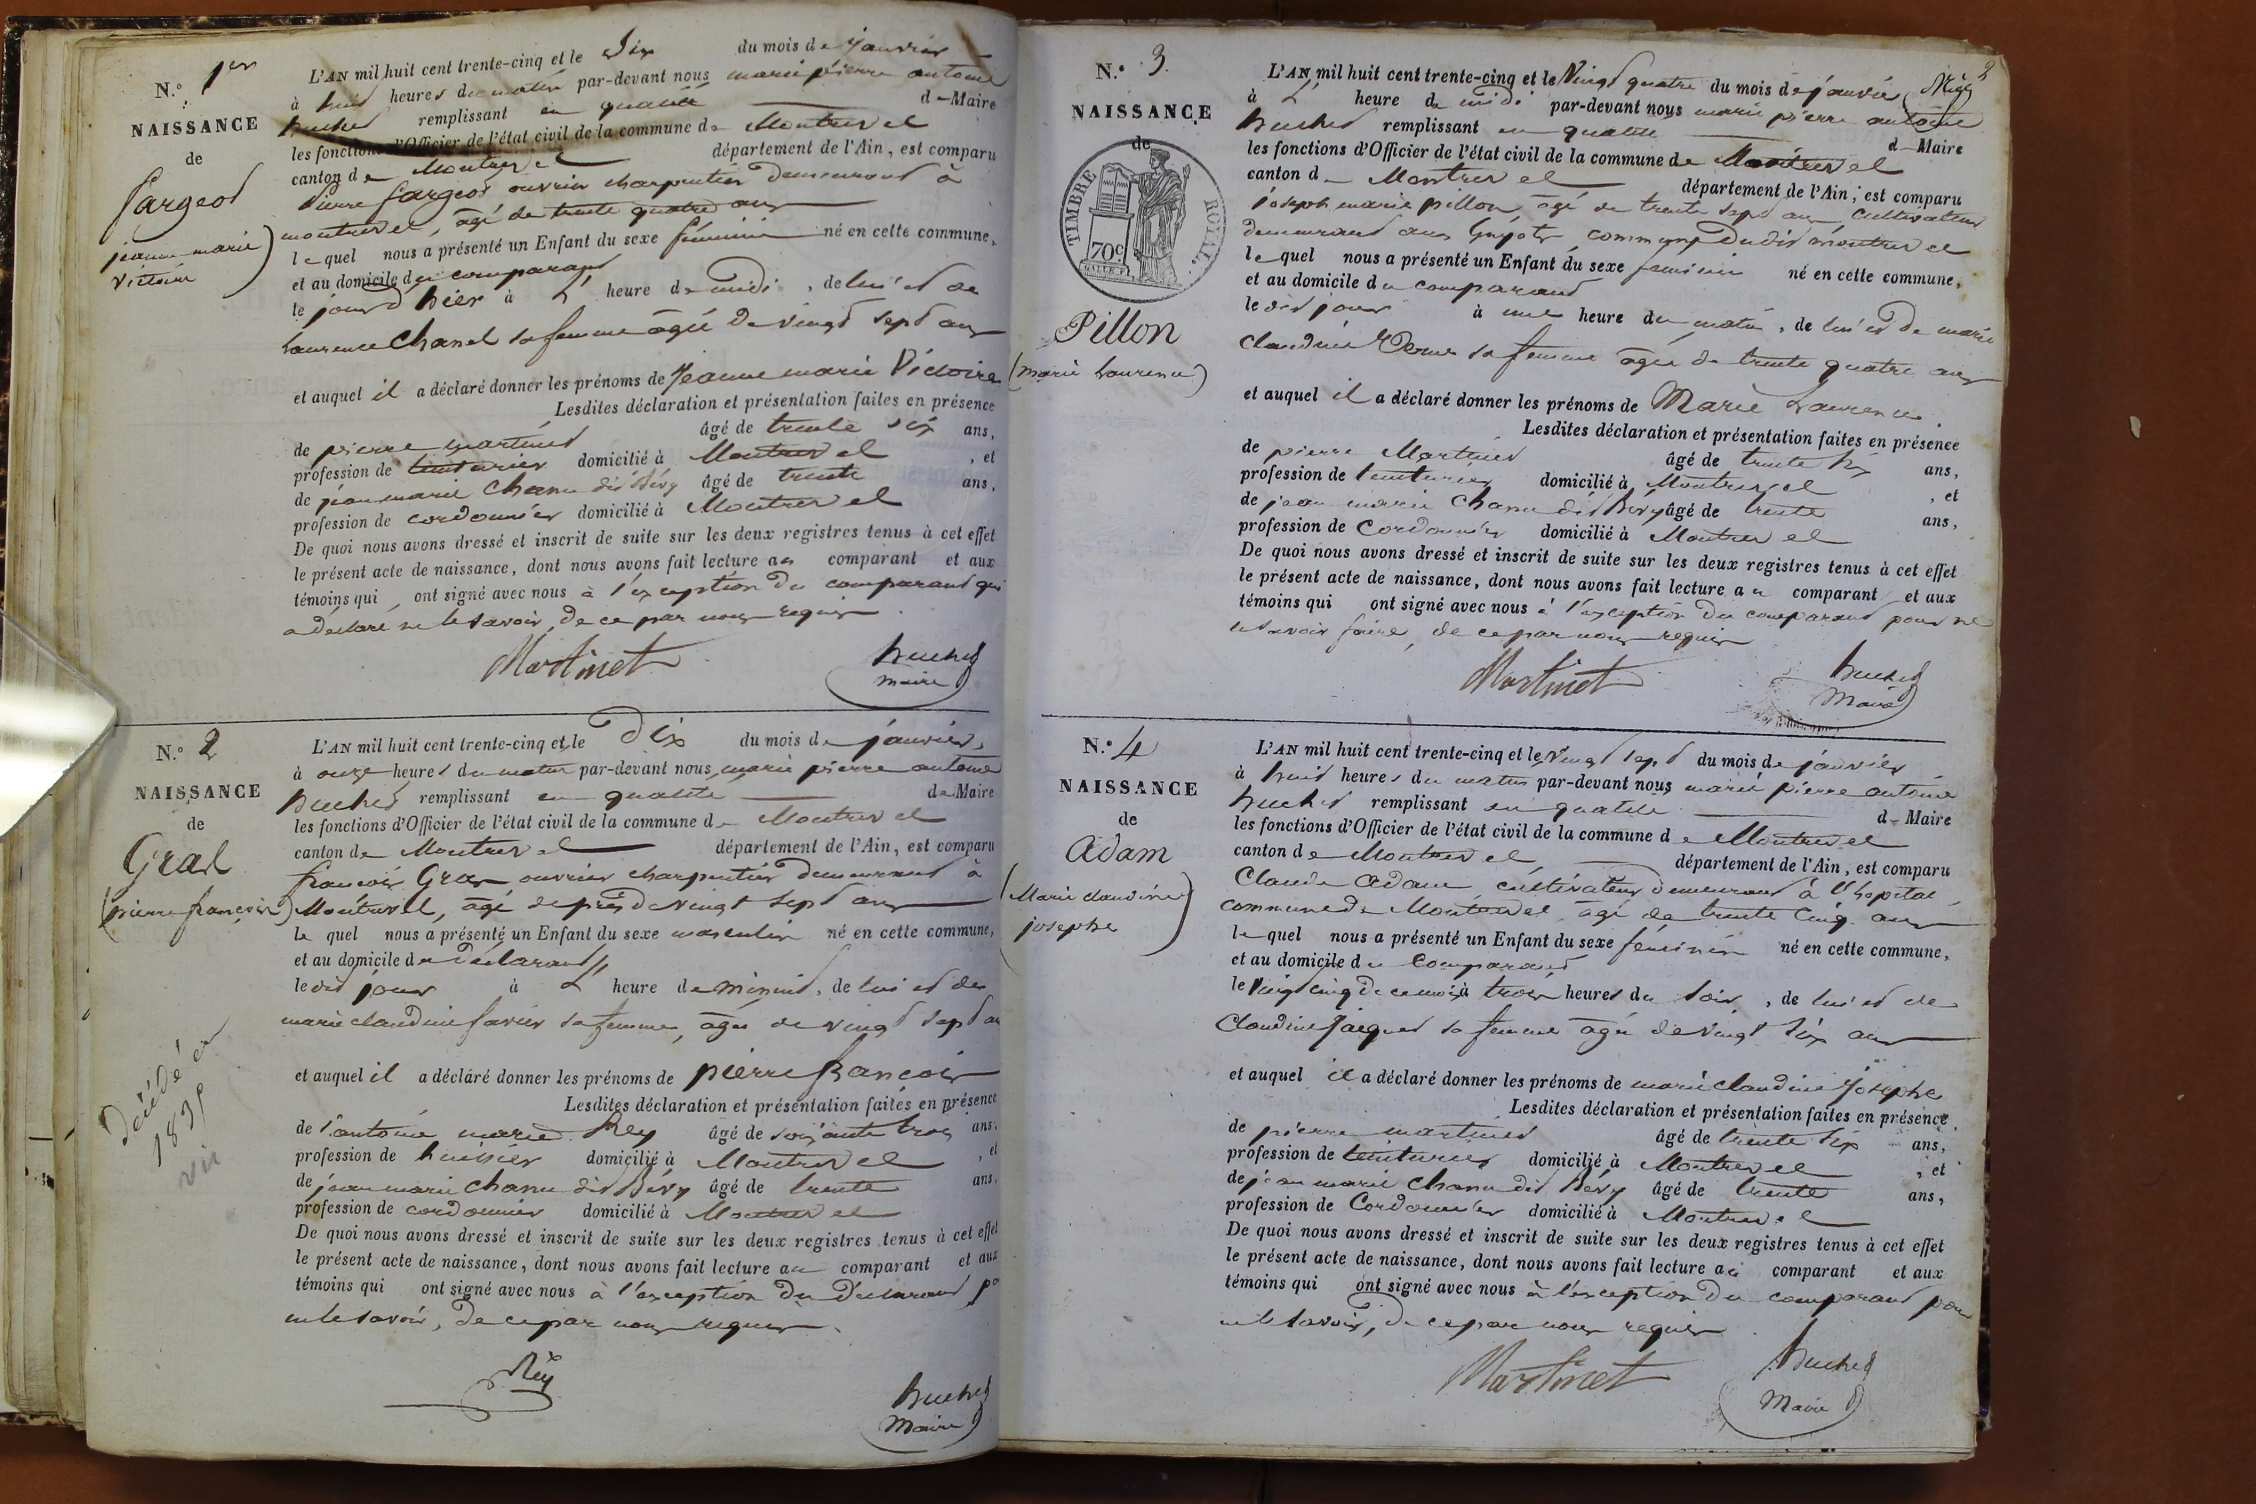 N.° 1er
NAISSANCE
de
fargeot
jeanne marie
victoire
L'AN mil huit cent trente-cinq et le Six du mois de janvier
à huit heures du matin par-devant nous marie pierre antoine
huchet remplissant en qualité de Maire
les fonctions d'Officier de l'état civil de la commune de Montrevel
canton de Montrevel département de l'Ain, est comparu
pierre fargeot ouvrier charpentier demeurant à
montrevel, âgé de trente quatre ans
lequel nous a présenté un Enfant du sexe féminin né en cette commune,
et au domicile du comparant
le jour d'hier à L' heure de midi, de lui et de
Laurence Chanel sa femme âgée de vingt sept ans
et auquel il a déclaré donner les prénoms de Jeanne marie Victoire
Lesdites déclaration et présentation faites en présence
de pierre martinet âgé de trente six ans,
profession de teinturier domicilié à Montrevel, et
de jean marie Chanu dit Bévy âgé de trente ans,
profession de cordonnier domicilié à Montrevel
De quoi nous avons dressé et inscrit de suite sur les deux registres tenus à cet effet
le présent acte de naissance, dont nous avons fait lecture au comparant et aux
témoins qui ont signé avec nous à l'exception du comparant qui
a déclaré ne le savoir, de ce par nous requis
Martinet huchet
maire
N.° 2
NAISSANCE
de
Gras
(pierre françois)
décédé en
1835
L'AN mil huit cent trente-cinq et le Dix du mois de janvier,
à onze heures du matin par-devant nous marie pierre antoine
huchet remplissant en qualité de Maire
les fonctions d'Officier de l'état civil de la commune de Montrevel
canton de Montrevel département de l'Ain, est comparu
françois Gras ouvrier charpentier demeurant à
Montrevel, âgé de près de vingt sept ans
lequel nous a présenté un Enfant du sexe masculin né en cette commune,
et au domicile du déclarant
le dit jour à L' heure de minuit, de lui et de
marie claudine favier sa femme, âgée de vingt sept ans
et auquel il a déclaré donner les prénoms de pierre françois
Lesdites déclaration et présentation faites en présence
de antoine marie Rey âgé de soixante trois ans,
profession de huissier domicilié à Montrevel, et
de jean marie Chanu dit Bévy âgé de trente ans,
profession de cordonnier domicilié à Montrevel
De quoi nous avons dressé et inscrit de suite sur les deux registres tenus à cet effet
le présent acte de naissance, dont nous avons fait lecture au comparant et aux
témoins qui ont signé avec nous à l'exception du déclarant pr
ne le savoir, de ce par nous requis
Rey
huchet
Maire
2
N.° 3.
NAISSANCE
de
TIMBRE ROYAL.
70c
Pillon
(marie Laurence)
L'AN mil huit cent trente-cinq et le Vingt quatre du mois de janvier
à L' heure de midi par-devant nous marie pierre antoine
huchet remplissant en qualité de Maire
les fonctions d'Officier de l'état civil de la commune de Montrevel
canton de Montrevel département de l'Ain, est comparu
joseph marie pillon âgé de trente sept ans, cultivateur
demeurant aux Guyots commune dudit montrevel
lequel nous a présenté un Enfant du sexe féminin né en cette commune,
et au domicile du comparant
le dit jour à une heure du matin, de lui et de marie
claudine sa femme âgée de trente quatre ans
et auquel il a déclaré donner les prénoms de Marie Laurence
Lesdites déclaration et présentation faites en présence
de pierre Martinet âgé de trente six ans,
profession de teinturier domicilié à Montrevel, et
de jean marie Chanu dit Bévy âgé de trente ans,
profession de Cordonnier domicilié à Montrevel
De quoi nous avons dressé et inscrit de suite sur les deux registres tenus à cet effet
le présent acte de naissance, dont nous avons fait lecture au comparant et aux
témoins qui ont signé avec nous à l'exception du comparant pour ne
le savoir faire, de ce par nous requis
Martinet huchet
Maire
N.° 4
NAISSANCE
de
Adam
(Marie claudine
josephe)
L'AN mil huit cent trente-cinq et le Vingt sept du mois de janvier
à huit heures du matin par-devant nous marie pierre antoine
huchet remplissant en qualité de Maire
les fonctions d'Officier de l'état civil de la commune de Montrevel
canton de Montrevel département de l'Ain, est comparu
Claude Adam, cultivateur demeurant à l'hopital,
commune de Montrevel, âgé de trente cinq ans
lequel nous a présenté un Enfant du sexe féminin né en cette commune,
et au domicile du comparant
le vingt cinq de ce mois à trois heures du soir, de lui et de
Claudine jacquet sa femme âgée de vingt six ans
et auquel il a déclaré donner les prénoms de marie Claudine josephe
Lesdites déclaration et présentation faites en présence
de pierre martinet âgé de trente six ans,
profession de teinturier domicilié à Montrevel, et
de jean marie Chanu dit Bévy âgé de trente ans,
profession de Cordonnier domicilié à Montrevel
De quoi nous avons dressé et inscrit de suite sur les deux registres tenus à cet effet
le présent acte de naissance, dont nous avons fait lecture au comparant et aux
témoins qui ont signé avec nous à l'exception du comparant pour
ne le savoir, de ce par nous requis
Martinet huchet
Maire